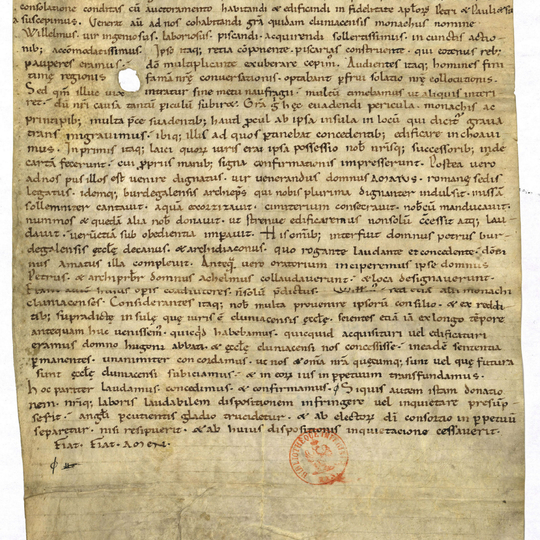 consolatione conditas cū auctoramento habitandi & edificandi in fidelitate aplorꝫ Petri & Pauli
suscepimus. Venerat aūt ad nos cohabitandi grā quidam cluniacensis monachus nomine
Willelmus. vir ingeniosus, laboriosus, piscandi, acquirendi sollertissimus, in cunctis actio
nib; accomodatissimus. Ipso itaq; retia cōponente, piscarias construente, qui eotenus reb;
pauperes eramus. dm multiplicante exuberare cepim. Audientes itaq; homines fini
time regionis famā nrę conversationis, optabant pfrui solatio nrę collocutionis.
Sed qm illuc sine metu naufragii, multū timebamus ut aliquis interi
ret. dū nri causa tantū piculū subiret. Grā g hęc evadendi pericula, monachis ac
principib; multa pce suadentib; haut pcul ab ipsa insula in locū qui dicit grava
transmigravimus. ibiq; illis ad quos ptinebat concedentib; edificare inchoavi
mus. Inprimis itaq; laici quorꝫ iuris erat ipsa possessio nob nrisq; successorib; inde
cartā fecerunt. cui ppriis manib; signa confirmationis impresserunt. Postea vero
ad nos pus illos est venire dignatus, vir venerandus domnus AMATUS. romanę sedis
legatus, idemq; burdegalensis archieps qui nobis plurima dignanter indulsit. missā
sollemniter cantavit. aquā exorizavit. cimiterium consecravit. nobcū manducavit.
nummos & quedā alia nob donavit. ut strenue edificaremus nonsolū ccessit atq; lau
davit. verū etiā sub obedientia impavit. His omnib; interfuit domnus petrus bur
degalensis ęcclę decanus, & archidiaconus, quo rogante laudante et concedente, dom
nus amatus illa complevit. Anteq vero oratorium inciperemus ipse domnus
Petrus, & archipbr domnus achelmus collaudaverunt, & loca designaverunt.
Etiam huius opis coadiutores nsolū pdictus
cluniacenses. Considerantes itaq; nob multa provenire ipsorū consilio, & ex reddi
tib; supradictę insulę quę iuris ē cluniacensis ęcclę, scientes etiā iā ex longo tēpore
antequam huc venissem. quicqd habebamus, quicquid acquisituri vel edificaturi
eramus domno hugoni abbati & ęcclę cluniacensi nos concessisse. in eadē sententia
pmanentes. unanimiter concordamus. ut nos & omā nra quęcumq; sunt vel quę futura
sunt ęcclę cluniacensi subiciamus & in eorꝫ ius in ppetuum transfundamus.
hoc pariter laudamus, concedimus, & confirmamus. Siquis autem istam donatio
nem, nriq; laboris laudabilem dispositionem infringere vel inquietare presūp
serit. angli pcutientis gladio trucidetur, & ab electorꝫ di consortio in ppetuū
separetur. nisi resipuerit, & ab huius dispositionis inquietatione cessaverit.
Fiat. Fiat. AMEN.